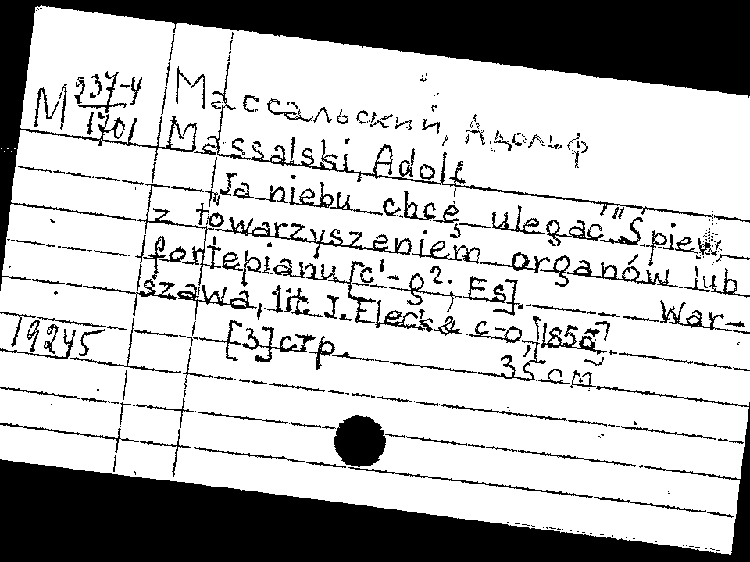 М 237-4
1701
Массальский, Адольф
Massalski, Adolf
"Ja niebu chcę ulegać." Śpiew
z towarzyszeniem organów lub
fortepianu [c¹-g²; Es]. War-
szawa, lit. J. Flecka c-o, [185
19245
[3] стр.
35 cm